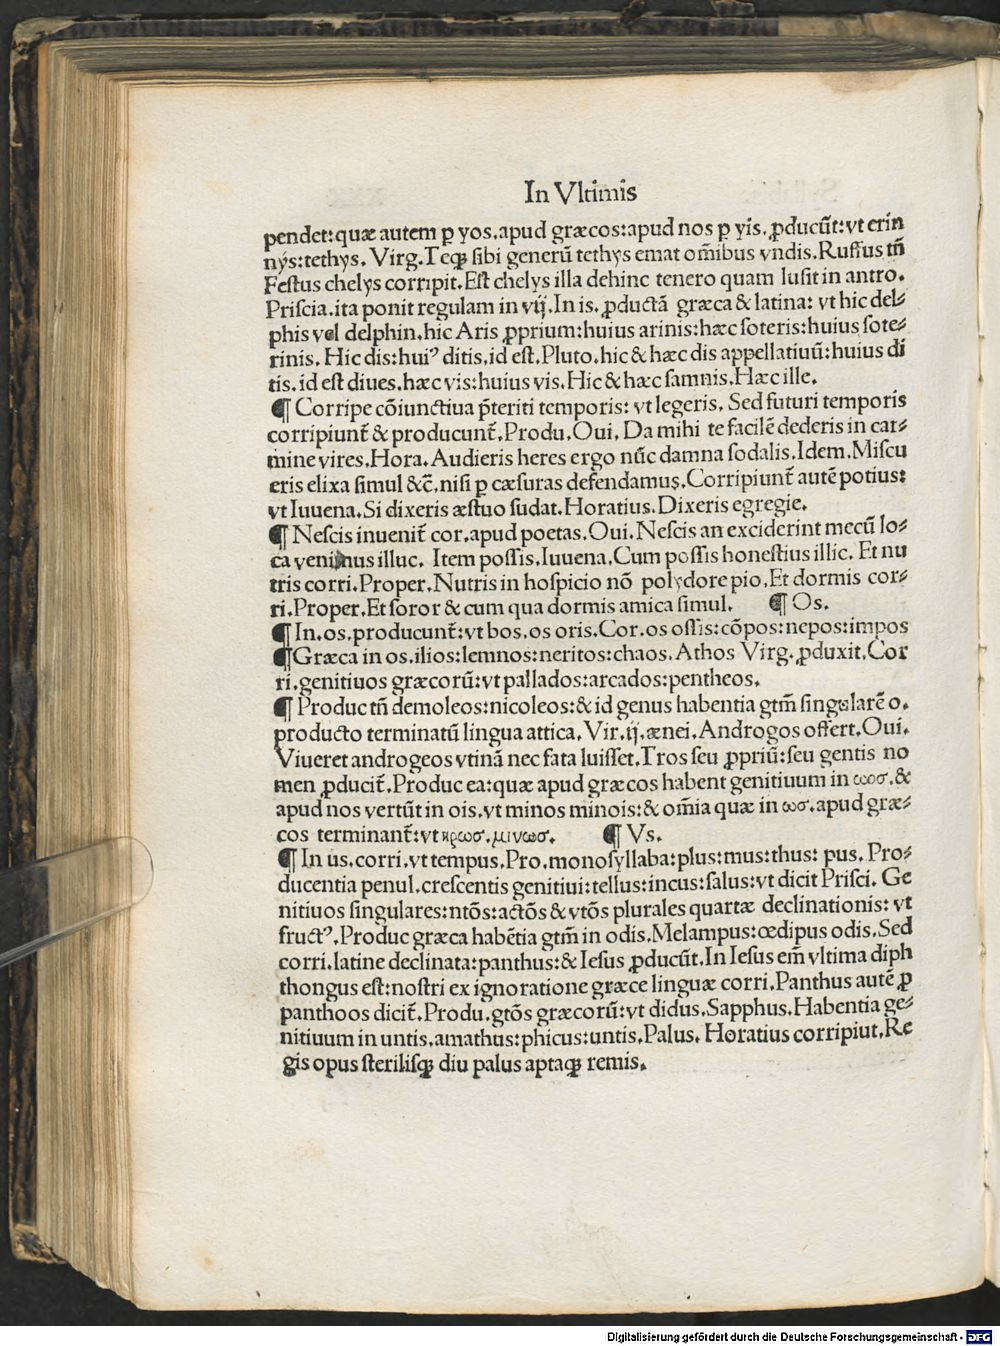 In Vltimis
pendet:quæ autem ꝑ yos.apud græcos:apud nos ꝑ yis. ꝓducũt:vt erin
nys:tethys. Virg.Teqꝫ sibi generũ tethys emat om̃ibus vndis.Ruffus tñ
Festus chelys corripit.Est chelys illa dehinc tenero quam lusit in antro.
Priscia.ita ponit regulam in vij.In is. ꝓductã græca & latina: vt hic del⸗
phis vel delphin.hic Aris ꝓprium:huius arinis:hæc soteris:huius sote⸗
rinis. Hic dis:huiꝰ ditis.id est.Pluto.hic & hæc dis appellatiuũ:huius di
tis.id est diues.hæc vis:huius vis.Hic & hæc samnis.Hæc ille.
¶ Corripe cõiunctiua p̃teriti temporis: vt legeris. Sed futuri temporis
corripiunt̃ & producunt̃.Produ.Oui. Da mihi te facilẽ dederis in car⸗
mine vires.Hora.Audieris heres ergo nũc damna sodalis.Idem.Miscu
eris elixa simul &c̃.nisi ꝑ cæsuras defendamus.Corripiunt̃ autẽ potius:
vt Iuuena.Si dixeris æstuo sudat.Horatius.Dixeris egregie.
¶ Nescis inuenit̃ cor.apud poetas.Oui.Nescis an exciderint mecũ lo⸗
ca venimus illuc. Item possis.Iuuena.Cum possis honestius illic. Et nu
tris corri.Proper.Nutris in hospicio nõ polydore pio.Et dormis cor⸗
ri.Proper.Et soror & cum qua dormis amica simul. ¶ Os.
¶ In.os.producunt̃:vt bos.os oris.Cor.os ossis:cõpos:nepos:impos
¶ Græca in os.ilios:lemnos:neritos:chaos.Athos Virg. ꝓduxit.Cor
ri.genitiuos græcorũ:vt pallados:arcados:pentheos.
¶ Produc tñ demoleos:nicoleos:& id genus habentia gtm̃ singularẽ o.
producto terminatũ lingua attica.Vir.ij.ænei.Androgos offert.Oui.
Viueret androgeos vtinã nec fata luisset.Tros seu ꝓpriũ:seu gentis no
men ꝓducit̃.Produc ea:quæ apud græcos habent genitiuum in ωοσ.&
apud nos vertũt in ois.vt minos minois:& om̃ia quæ in ωσ.apud græ⸗
cos terminant̃:vt ηρωσ.μινωσ. ¶ Vs.
¶ In us.corri.vt tempus.Pro.monosyllaba:plus:mus:thus: pus. Pro⸗
ducentia penul.crescentis genitiui:tellus:incus:salus:vt dicit Prisci. Ge
nitiuos singulares:ntõs:actõs & vtõs plurales quartæ declinationis: vt
fructꝰ.Produc græca habẽtia gtm̃ in odis.Melampus:œdipus odis.Sed
corri.latine declinata:panthus:& Iesus ꝓducũt.In Iesus em̃ vltima diph
thongus est:nostri ex ignoratione græce linguæ corri.Panthus autẽ ꝓ
panthoos dicit̃.Produ.gtõs græcorũ:vt didus.Sapphus.Habentia ge⸗
nitiuum in untis.amathus:phicus:untis.Palus. Horatius corripiut.Re
gis opus sterilisqꝫ diu palus aptaqꝫ remis.
Digitalisierung gefördert durch die Deutsche Forschungsgemeinschaft - DFG